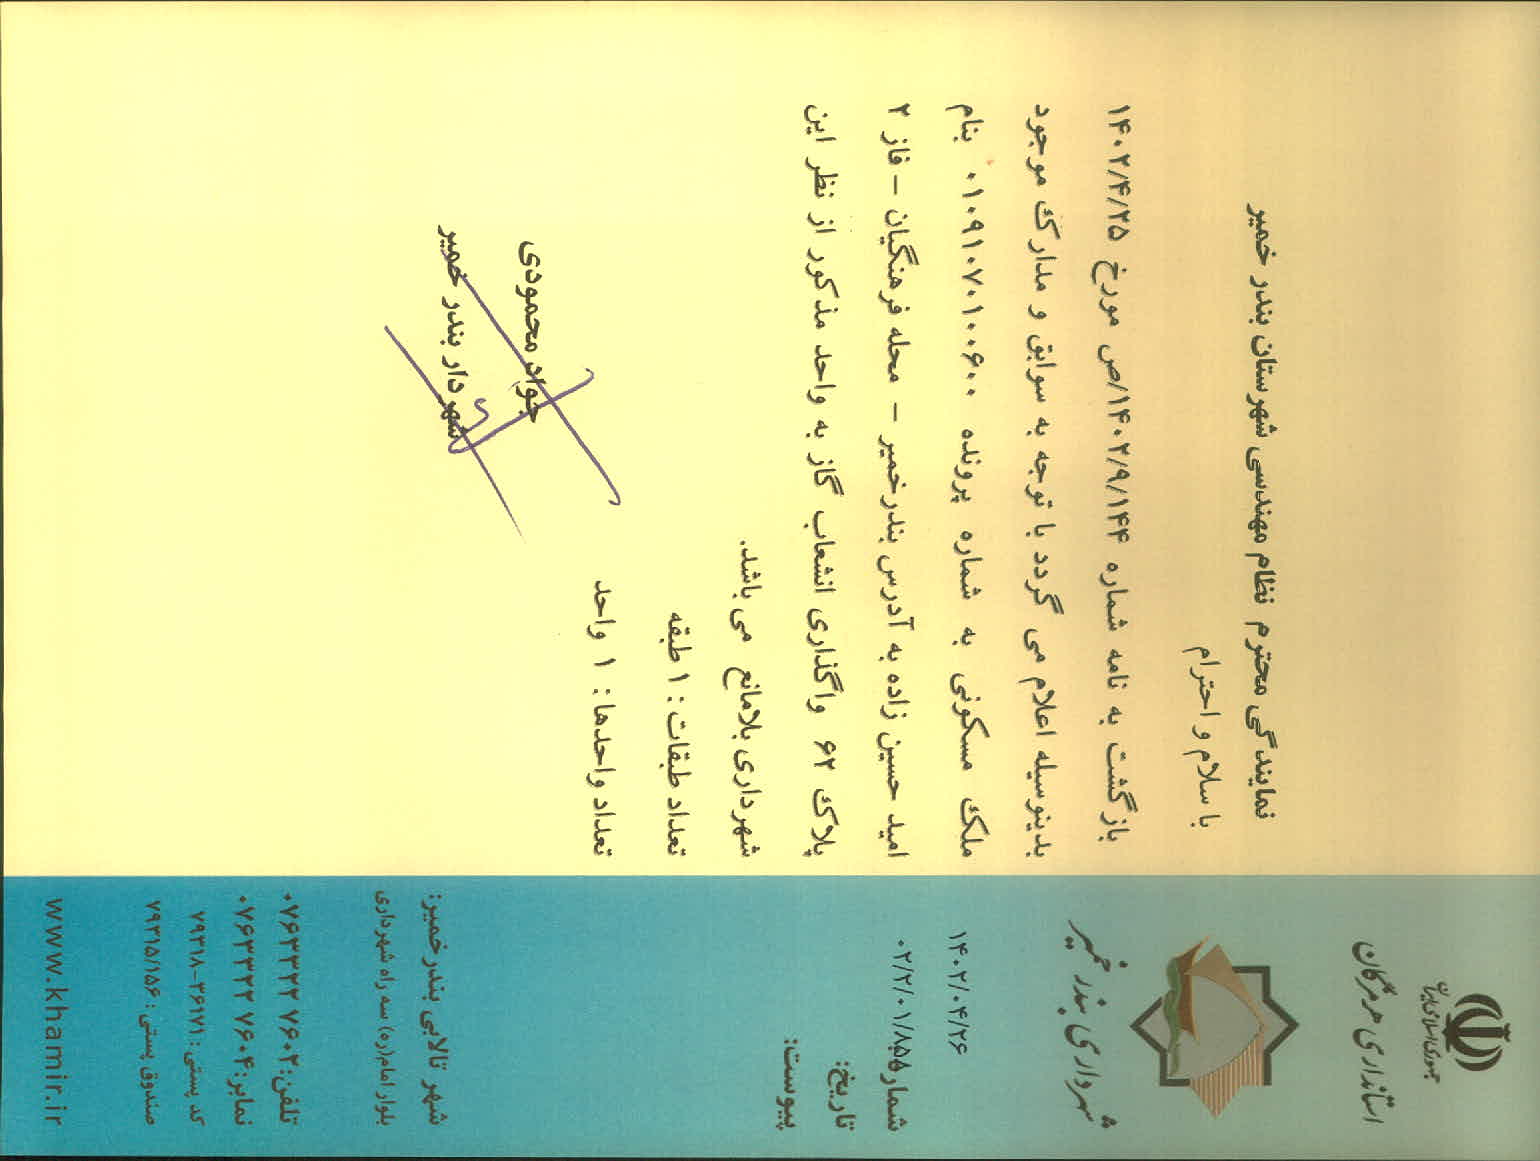 جمهوری اسلامی ایران
استانداری هرمزگان
شهرداری بندر خمیر
۱۴۰۲/۰۴/۲۶
شماره ۰۲/۲/۰۱/۸۵۵
تاریخ:
پیوست:
نمایندگی محترم نظام مهندسی شهرستان بندر خمیر
با سلام و احترام
بازگشت به نامه شماره ۱۴۰۲/۹/۱۴۴/ص مورخ ۱۴۰۲/۴/۲۵
بدینوسیله اعلام می گردد با توجه به سوابق و مدارک موجود
ملک مسکونی به شماره پرونده ۰۱۰۹۱۰۷۰۱۰۰۶۰۰ بنام
امید حسین زاده به آدرس بندرخمیر – محله فرهنگیان – فاز ۲
پلاک ۶۲ واگذاری انشعاب گاز به واحد مذکور از نظر این
شهرداری بلامانع می باشد.
تعداد طبقات : ۱ طبقه
تعداد واحدها : ۱ واحد
جواد محمودی
شهردار بندر خمیر
شهر تالابی بندرخمیر:
بلوار امام(ره) سه راه شهرداری
تلفن: ۰۷۶۳۳۲۲۷۶۰۲
نمابر: ۰۷۶۳۳۲۲۷۶۰۴
کد پستی : ۳۶۱۷۱-۷۹۳۱۸
صندوق پستی : ۷۹۳۱۵/۱۵۶
www.khamir.ir